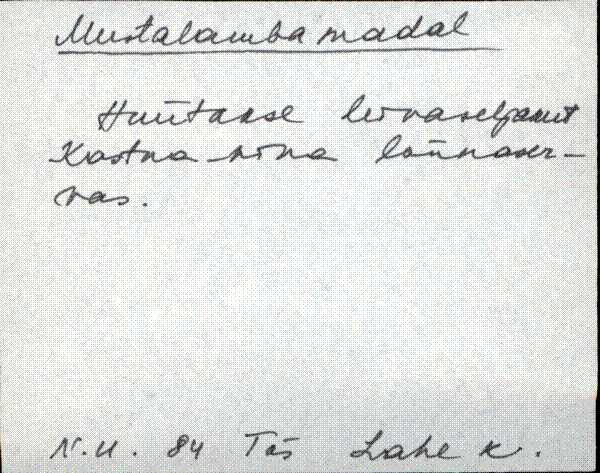 Mustalamba madal
Hüütakse leivaseljamit
Kastna-nina lõunaser-
vas.
N.U. 84 Tõs Lahe k.